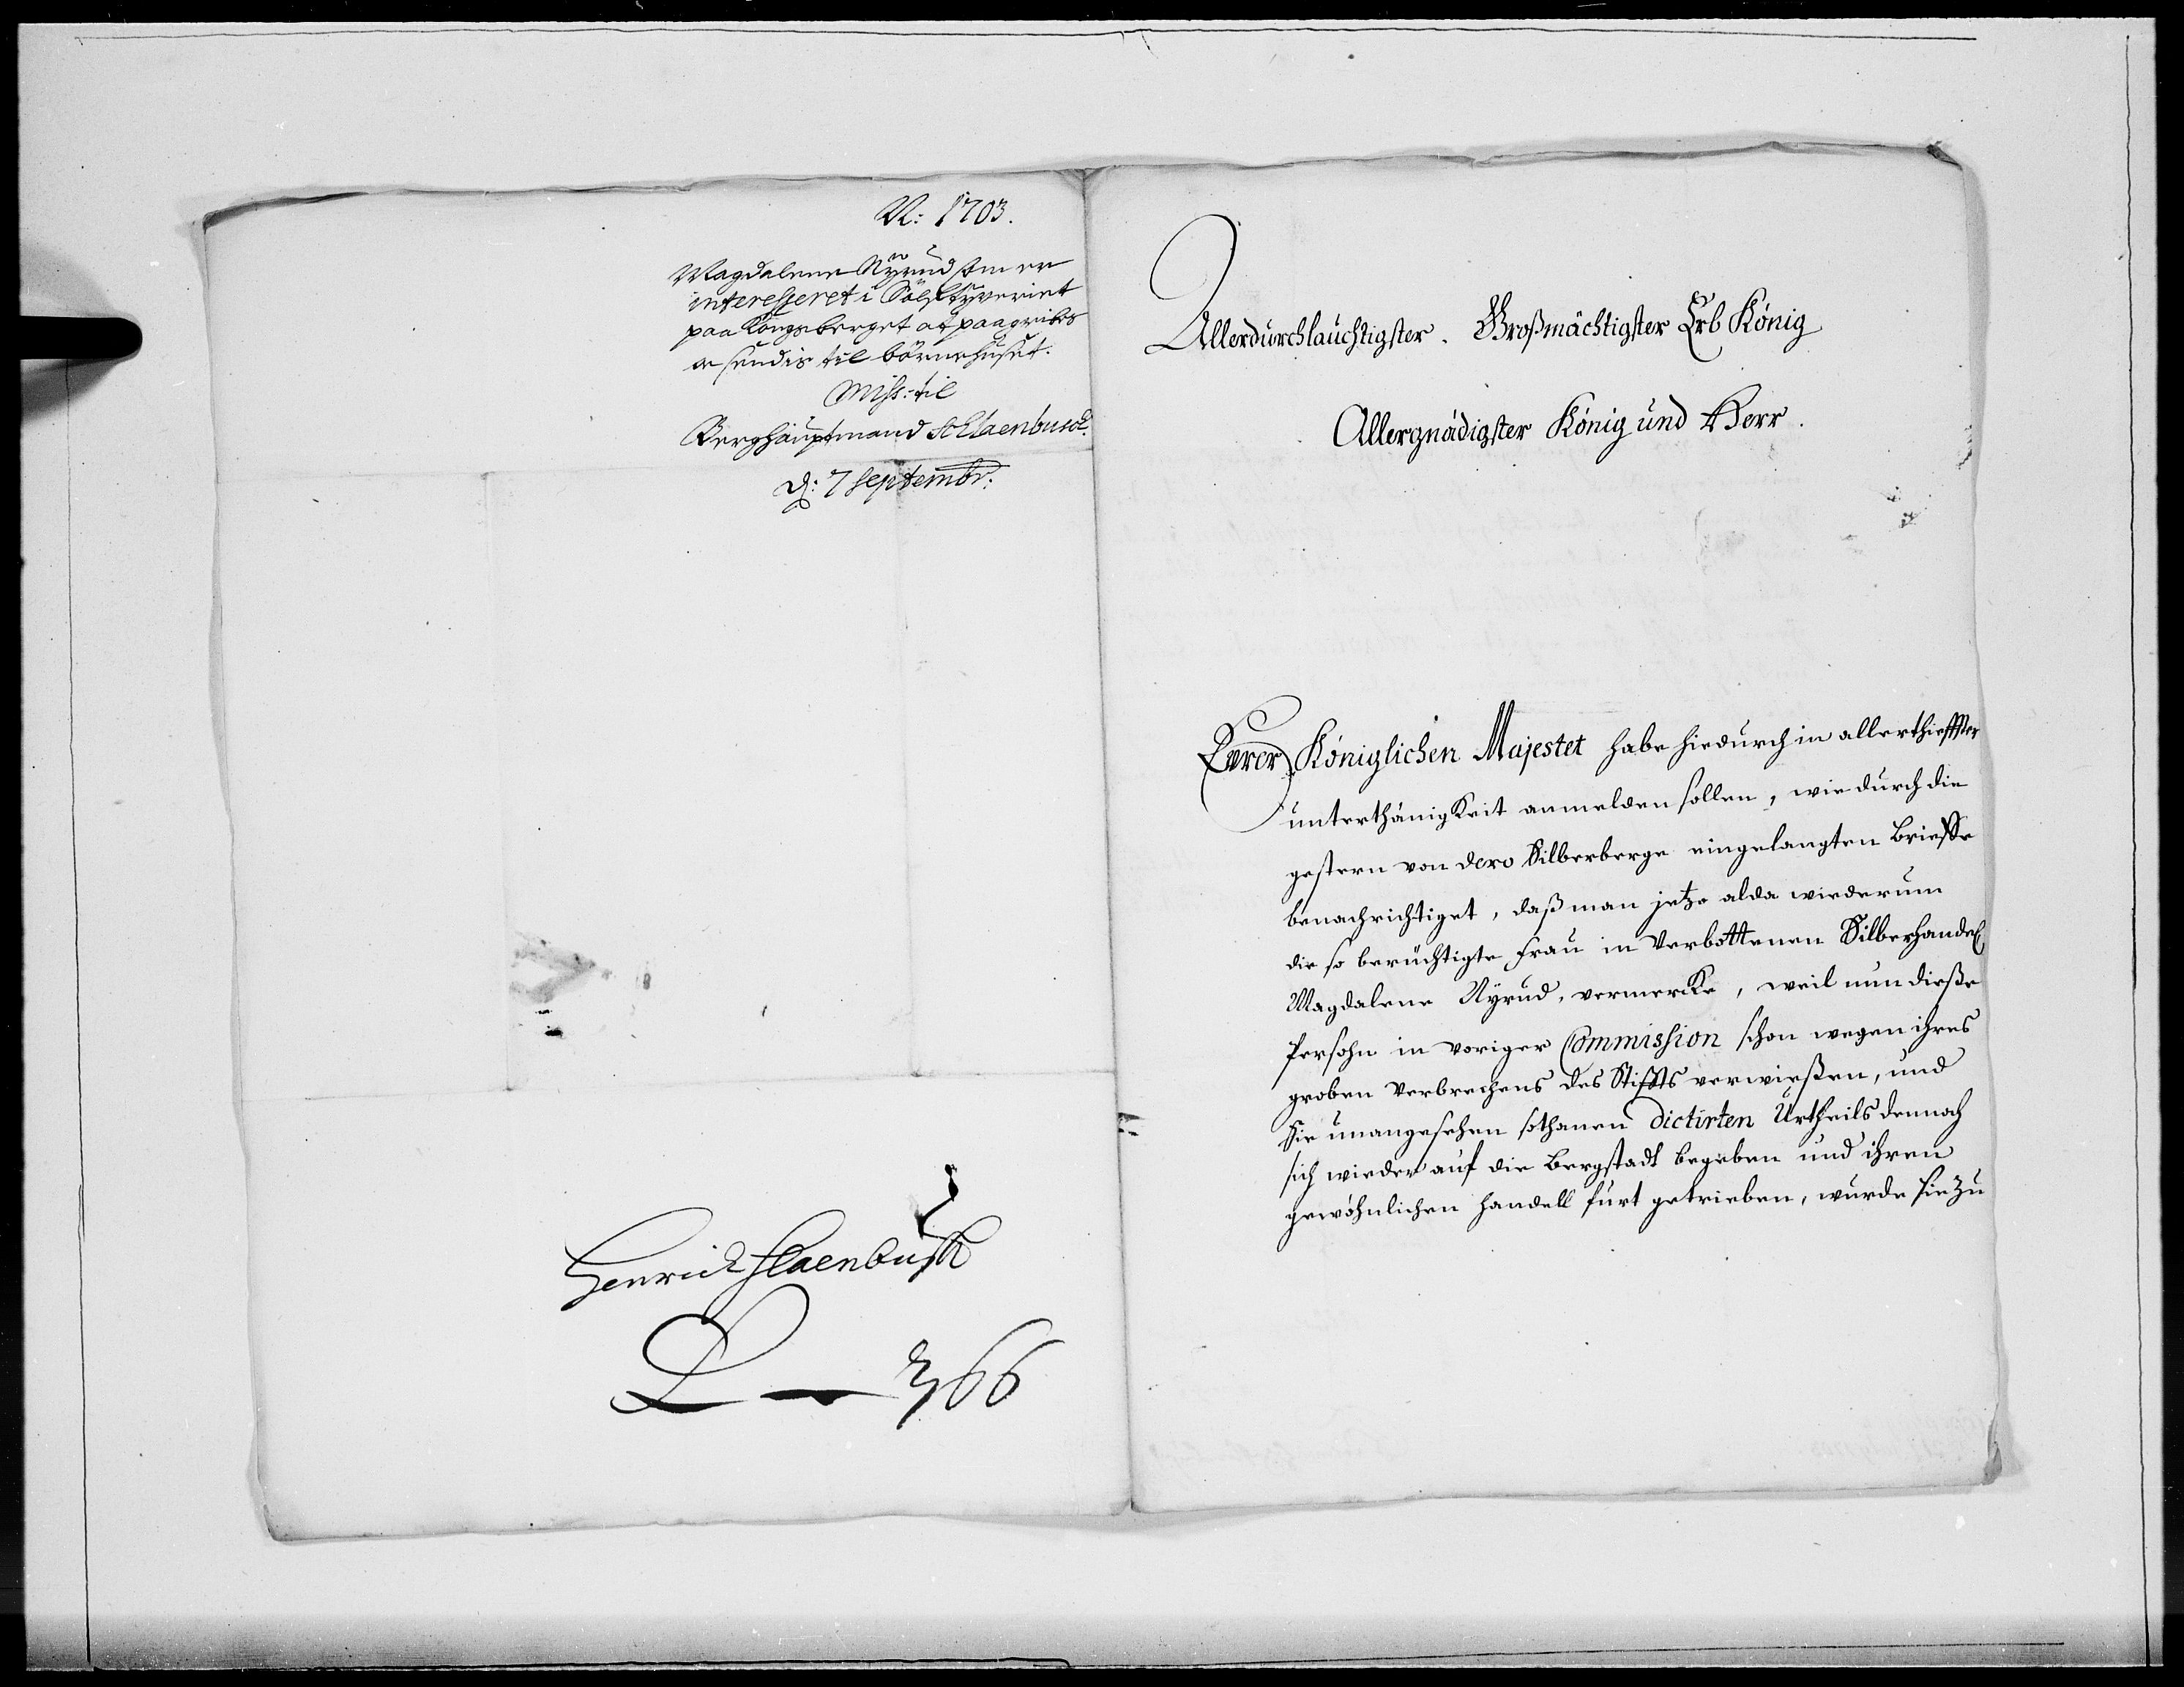 N: 1703.
Magdalene Nÿrud som er
interesseret i Sølf tyveriet
paa Kongsberget at paagribes
oc sendis til börnehuset.
Miss: til
Berghauptmand Schlaenbusch.
d: 7 Septembr:
Henrich Slaenbusch
L 366
Allerdurchlauchtigster. Großmächtigster Erb König
Allergnädigster König und Herr.
Ewrer Königlichen Majestet habe hiedurch in allerthieffster
unterthänigkeit anmelden sollen, wie durch die
gestern von dero Silberberge eingelangten Brieffe
benachrichtiget, daß man jetzo alda wiederum
die so berüchtigte Frau in Verbottenen Silberhandel
Magdalene Nyrud, vermercke, weil nun dieße
Persohn in voriger Commission schon wegen ihres
groben Verbrechens des Stiffts verwießen, und
Sie unangesehen sothanen dictirten Urtheils dennoch
sich wieder auf die Bergstadt begeben und ihren
gewöhnlichen handell furt getrieben, wurde sie zu